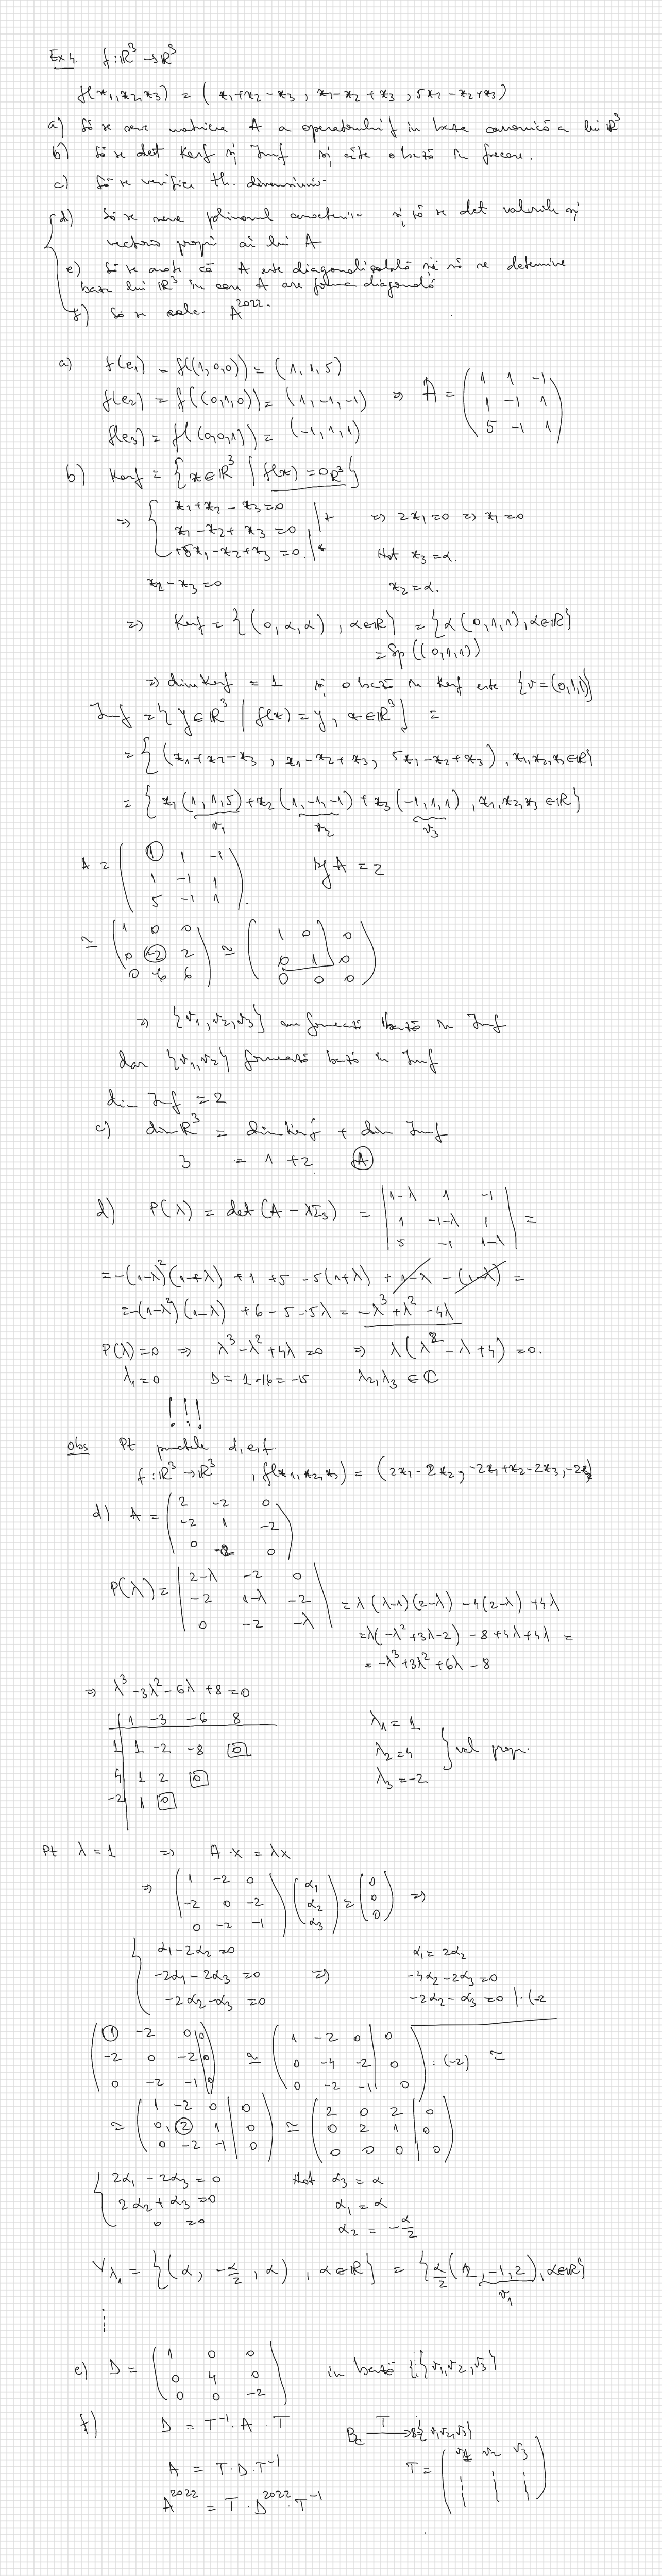 Ex 4. f: ℝ³ → ℝ³
f(x₁, x₂, x₃) = (x₁+x₂-x₃, x₁-x₂+x₃, 5x₁-x₂+x₃)
a) Să se scrie matricea A a operatorului f în baza canonică a lui ℝ³
b) Să se det Ker f și Im f și câte o bază în fiecare.
c) Să se verifice th. dimensiunii.
d) Să se scrie polinomul caracteristic și să se det valorile și
vectorii proprii ai lui A
e) Să se arate că A este diagonalizabilă și să se determine
baza lui ℝ³ în care A are forma diagonală
f) Să se calc. A²⁰²².
a) f(e₁) = f((1,0,0)) = (1,1,5)
f(e₂) = f((0,1,0)) = (1,-1,-1) ⇒ A = ( 1 1 -1
1 -1 1
5 -1 1 )
f(e₃) = f((0,0,1)) = (-1,1,1)
b) Ker f = { x∈ℝ³ | f(x) = 0ℝ³ }
⇒ { x₁+x₂-x₃=0 | + ⇒ 2x₁=0 ⇒ x₁=0
x₁-x₂+x₃=0
+5x₁-x₂+x₃=0 | + Not x₃=α.
x₂-x₃=0 x₂=α.
⇒ Ker f = {(0,α,α), α∈ℝ} = {α(0,1,1), α∈ℝ}
= Sp((0,1,1))
⇒ dim Ker f = 1 și o bază în Ker f este {v=(0,1,1)}
Im f = { y∈ℝ³ | f(x)=y, x∈ℝ³ } =
= { (x₁+x₂-x₃, x₁-x₂+x₃, 5x₁-x₂+x₃), x₁,x₂,x₃∈ℝ }
= { x₁(1,1,5) + x₂(1,-1,-1) + x₃(-1,1,1), x₁,x₂,x₃∈ℝ }
v₁ v₂ v₃
A = ( 1 1 -1
1 -1 1
5 -1 1 ) rg A = 2
≃ ( 1 0 0
0 -2 2
0 -6 6 ) ≃ ( 1 0 0
0 1 0
0 0 0 )
⇒ {v₁,v₂,v₃} nu formează bază în Im f
dar {v₁,v₂} formează bază în Im f
dim Im f = 2
c) dim ℝ³ = dim Ker f + dim Im f
3 = 1 + 2 (A)
d) P(λ) = det(A - λI₃) = | 1-λ 1 -1
1 -1-λ 1
5 -1 1-λ | =
= -(1-λ)²(1+λ) + 1 + 5 - 5(1+λ) + 1-λ - (1-λ) =
= -(1-λ²)(1-λ) + 6 - 5 - 5λ = -λ³+λ²-4λ
P(λ)=0 ⇒ λ³-λ²+4λ=0 ⇒ λ(λ²-λ+4)=0.
λ₁=0 Δ=1-16=-15 λ₂,λ₃∈ℂ
!!!
Obs Pt punctele d,e,f.
f: ℝ³→ℝ³, f(x₁,x₂,x₃) = (2x₁-2x₂, -2x₁+x₂-2x₃, -2x₂)
d) A = ( 2 -2 0
-2 1 -2
0 -2 0 )
P(λ) = | 2-λ -2 0
-2 1-λ -2
0 -2 -λ | = λ(λ-1)(2-λ) - 4(2-λ) + 4λ
= λ(-λ²+3λ-2) - 8 + 4λ + 4λ =
= -λ³+3λ²+6λ-8
⇒ λ³-3λ²-6λ+8=0
1 -3 -6 8
1 1 -2 -8 0 λ₁=1
4 1 2 0 λ₂=4 } val propr.
-2 1 0 λ₃=-2
Pt λ=1 ⇒ A·x = λx
⇒ ( 1 -2 0
-2 0 -2
0 -2 -1 ) ( α₁
α₂
α₃ ) = ( 0
0
0 ) ⇒
{ α₁-2α₂=0 α₁=2α₂
-2α₁-2α₃=0 ⇒ -4α₂-2α₃=0
-2α₂-α₃=0 -2α₂-α₃=0 | ·(-2
( 1 -2 0 | 0
-2 0 -2 | 0
0 -2 -1 | 0 ) ≃ ( 1 -2 0 | 0
0 -4 -2 | 0
0 -2 -1 | 0 ) : (-2) ≃
≃ ( 1 -2 0 | 0
0 2 1 | 0
0 -2 -1 | 0 ) ≃ ( 2 0 2 | 0
0 2 1 | 0
0 0 0 | 0 )
{ 2α₁-2α₃=0 Not α₃=α
2α₂+α₃=0 α₁=α
0=0 α₂=-α/2
Vλ₁ = {(α, -α/2, α), α∈ℝ} = {α/2(2,-1,2), α∈ℝ}
v₁
e) D = ( 1 0 0
0 4 0
0 0 -2 ) în baza {v₁,v₂,v₃}
f) D = T⁻¹·A·T B_c →T B{v₁,v₂,v₃}
A = T·D·T⁻¹ T = ( v₁ v₂ v₃ )
A²⁰²² = T·D²⁰²²·T⁻¹